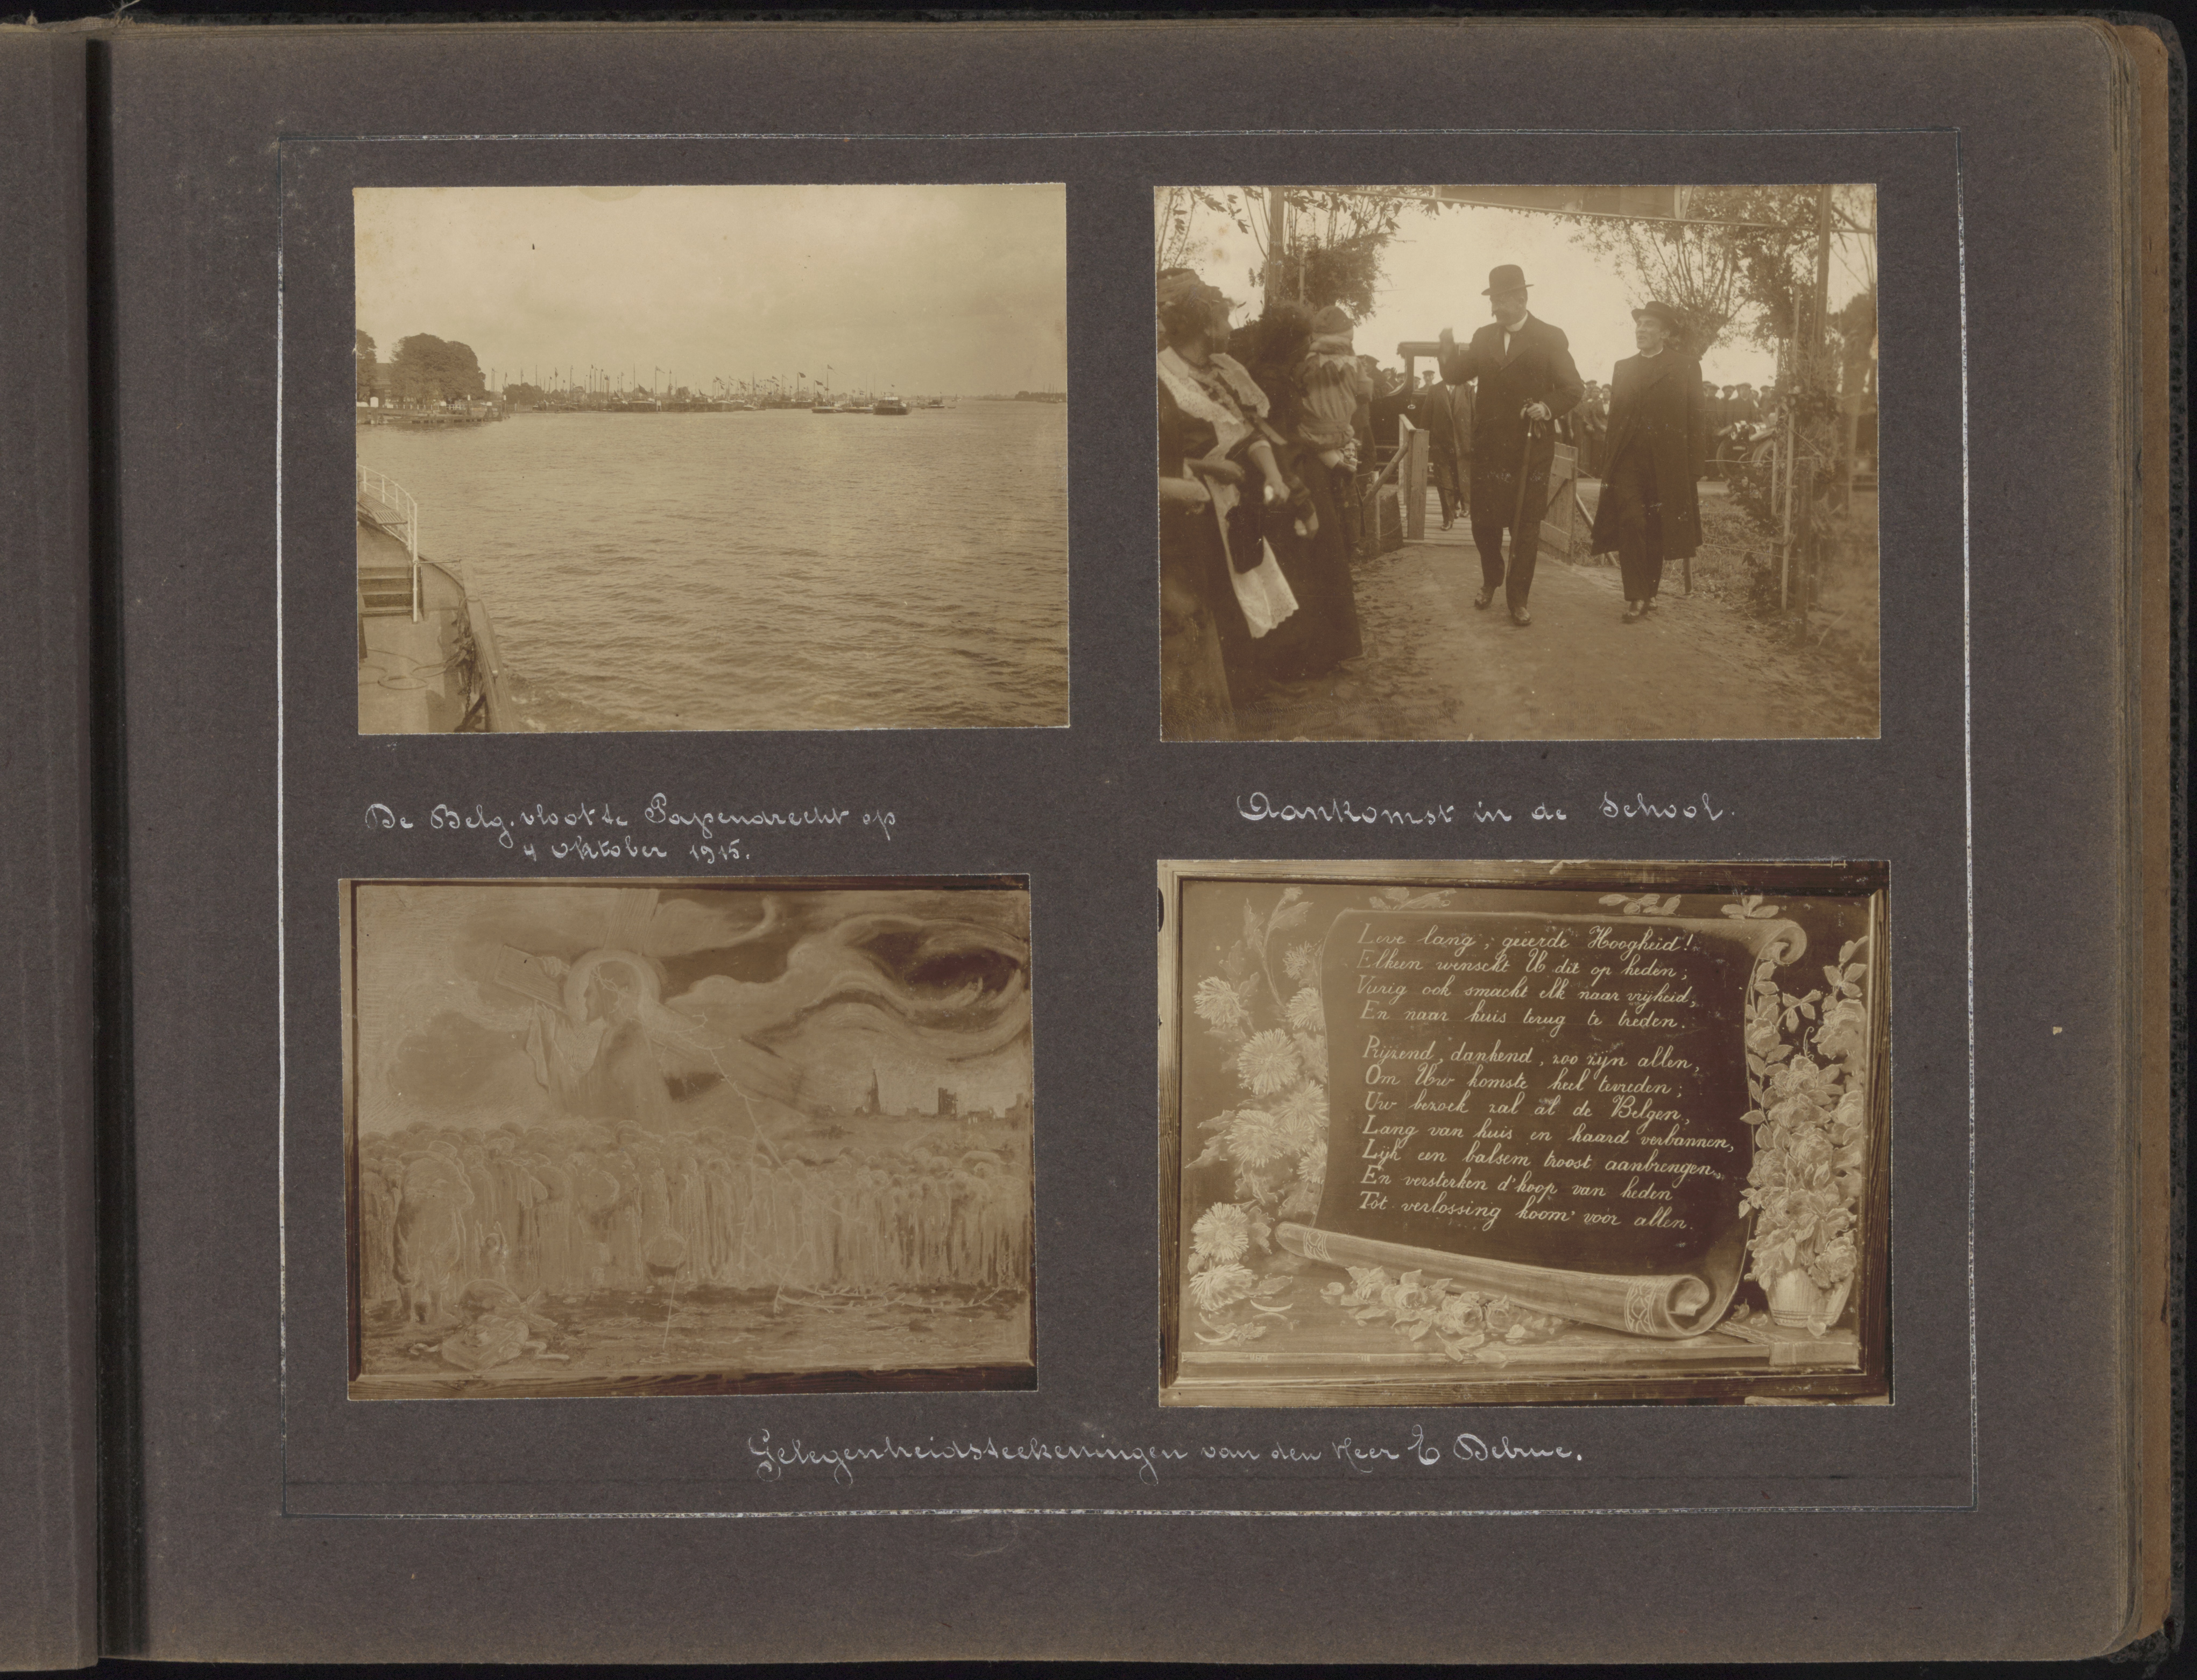 De Belg. vloot te Papendrecht op
4 Oktober 1915.
Aankomst in de School.
Leve lang, geëerde Hoogheid!
Elkeen wenscht U dit op heden;
Vurig ook smacht elk naar vrijheid,
En naar huis terug te treden.
Prijzend, dankend, zoo zijn allen,
Om Uw komste heel tevreden;
Uw bezoek zal al de Belgen,
Lang van huis en haard verbannen,
Lijk een balsem troost aanbrengen,
En versterken d'hoop van heden
Tot verlossing koom' voor allen.
Gelegenheidsteekeningen van den Heer E Debrue.